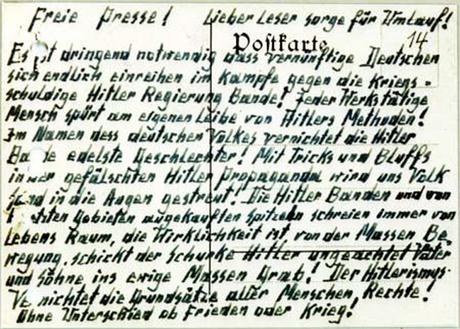 Freie Presse! Lieber Leser sorge für Umlauf!
Postkarte
14
Es ist dringend notwendig dass vernünftige Deutschen
sich endlich einreihen im Kampfe gegen die Kriegs-
schuldige Hitler Regierung Bande! Jeder Werkstätige
Mensch spürt am eigenen Leibe von Hitlers Methoden!
Im Namen dess deutschen Volkes vernichtet die Hitler
edelste Geschlechter! Mit Tricks und Bluffs
gefälschten Hitler Propaganda wird uns Volk
in die Augen gestreut! Die Hitler Banden und von
Gebieten aufgekauften Spitzeln schreien immer von
Lebens Raum, die Wirklichkeit ist, von der Massen Be-
wegung, schickt der schurke Hitler ungeachtet Väter
und Söhne ins ewige Massen Grab! Der Hitlerismus
Vernichtet die Grundsätze aller Menschen Rechte!
Ohne Unterschied ob Frieden oder Krieg!